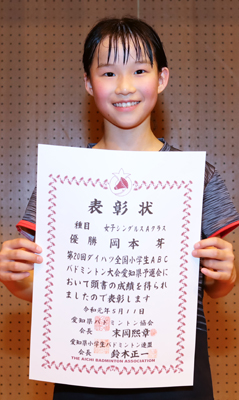 表彰状
種目 女子シングルスAクラス
優勝 岡本 芽
第20回ダイハツ全国小学生ABC
バドミントン大会愛知県予選会に
おいて頭書の成績を得られ
ましたので表彰します
令和元年5月11日
愛知県バドミントン協会
会長 末岡熙章
愛知県小学生バドミントン連盟
会長 鈴木正一
THE AICHI BADMINTON ASSOCIATION